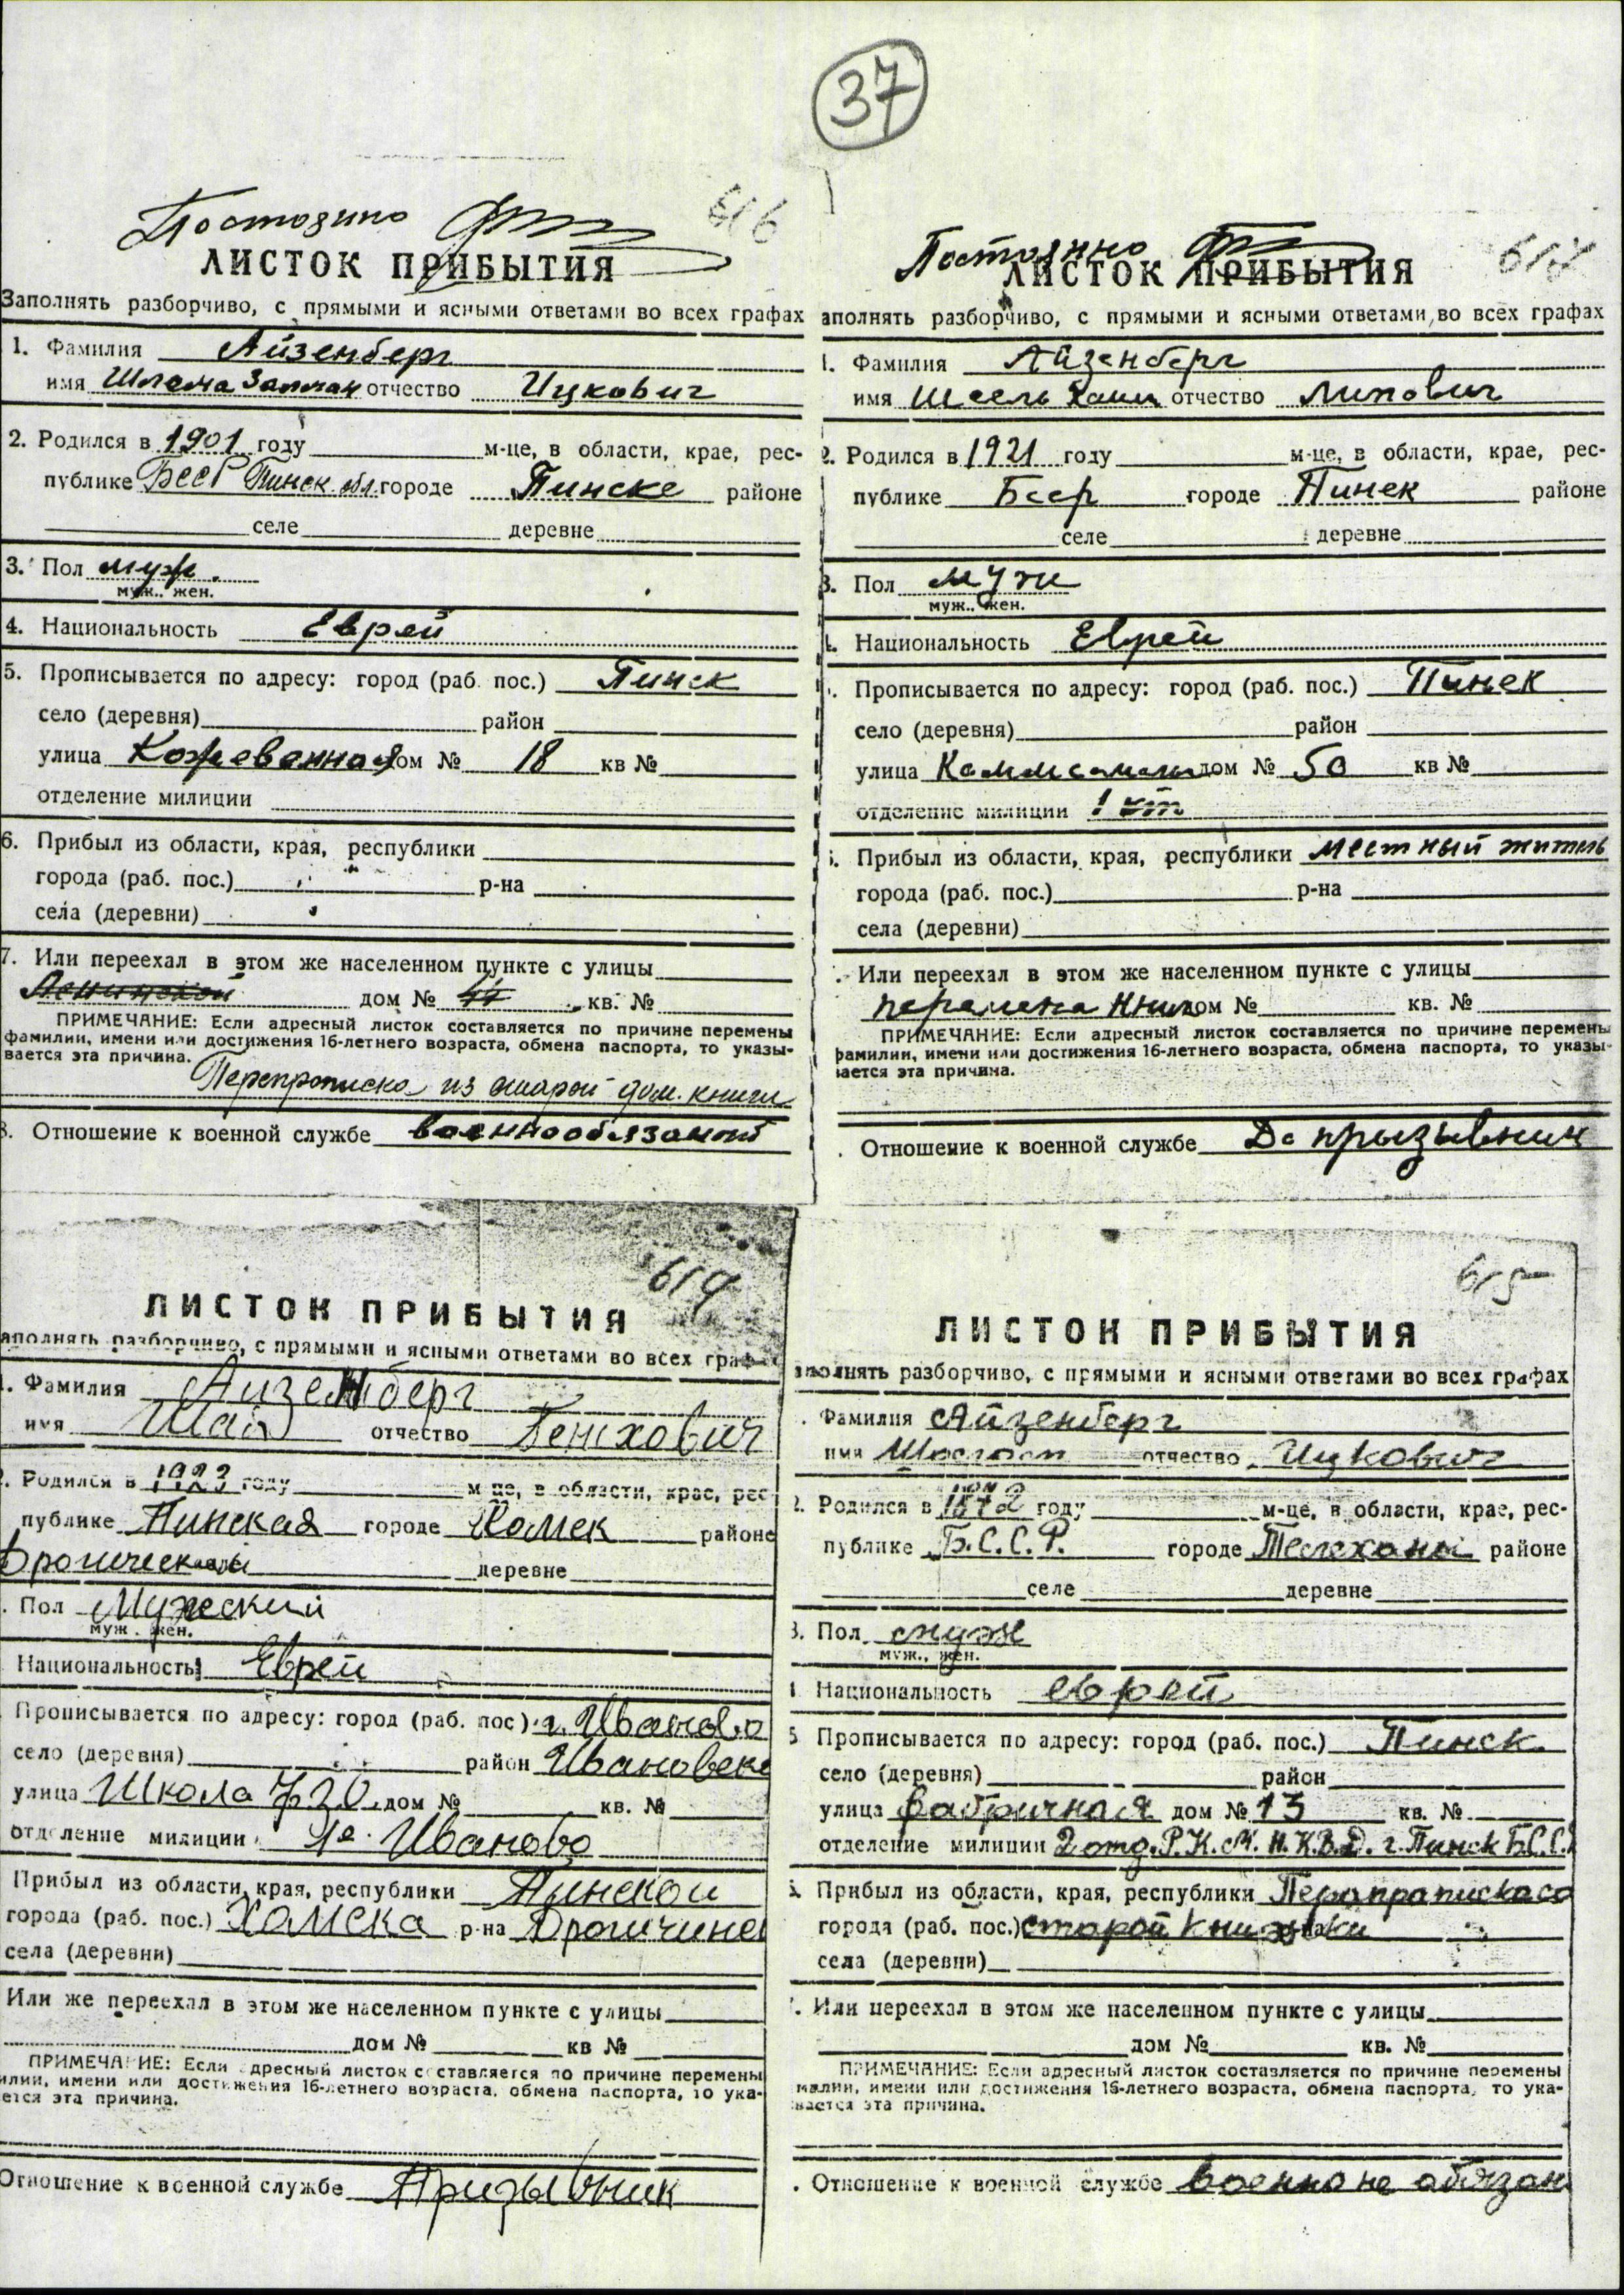 37
Постоянно
616
ЛИСТОК ПРИБЫТИЯ
Заполнять разборчиво, с прямыми и ясными ответами во всех графах
1. Фамилия Айзенберг
имя Шлема Залман отчество Ицкович
2. Родился в 1901 году м-це, в области, крае, рес-
публике БССР Пинск. обл. городе Пинске районе
селе деревне
3. Пол муж.
муж., жен.
4. Национальность Еврей
5. Прописывается по адресу: город (раб. пос.) Пинск
село (деревня) район
улица Кожевенная дом № 18 кв №
отделение милиции
6. Прибыл из области, края, республики
города (раб. пос.) р-на
села (деревни)
7. Или переехал в этом же населенном пункте с улицы
Ленинской дом № 44 кв. №
ПРИМЕЧАНИЕ: Если адресный листок составляется по причине перемены
фамилии, имени или достижения 16-летнего возраста, обмена паспорта, то указы-
вается эта причина.
Перепрописка из старой дом. книги
8. Отношение к военной службе военнообязаный
Постоянно
617
ЛИСТОК ПРИБЫТИЯ
аполнять разборчиво, с прямыми и ясными ответами, во всех графах
1. Фамилия Айзенберг
имя Шеель Хаим отчество Липович
2. Родился в 1921 году м-це, в области, крае, рес-
публике Бсср городе Пинск районе
селе деревне
3. Пол мужи
муж., жен.
Национальность Еврей
Прописывается по адресу: город (раб. пос.) Пинск
село (деревня) район
улица дом № 50 кв №
отделение милиции 1
Прибыл из области, края, республики местный житель
города (раб. пос.) р-на
села (деревни)
Или переехал в этом же населенном пункте с улицы
перемена книги дом № кв. №
ПРИМЕЧАНИЕ: Если адресный листок составляется по причине перемены
фамилии, имени или достижения 16-летнего возраста, обмена паспорта, то указы-
вается эта причина.
Отношение к военной службе Допрызывник
619
ЛИСТОК ПРИБЫТИЯ
аполнять разборчиво, с прямыми и ясными ответами во всех графах
1. Фамилия Айзенберг
имя Шая отчество Генохович
2. Родился в 1923 году м-це, в области, крае, рес-
публике Пинская городе Хомск районе
Дрогический деревне
Пол Мужеский
муж. жен.
Национальность Еврей
Прописывается по адресу: город (раб. пос) г. Иваново
село (деревня) район Ивановск
улица Школа дом № кв. №
отделение милиции Иваново
Прибыл из области, края, республики Пинской
города (раб. пос.) Хомска р-на Дрогичинс
села (деревни)
Или же переехал в этом же населенном пункте с улицы
дом № кв №
ПРИМЕЧАНИЕ: Если адресный листок составляется по причине перемены
илии, имени или достижения 16-летнего возраста, обмена паспорта, то ука-
ется эта причина.
Отношение к военной службе Призывник
615
ЛИСТОК ПРИБЫТИЯ
аполнять разборчиво, с прямыми и ясными ответами во всех графах
Фамилия Айзенберг
имя отчество Ицкович
2. Родился в 1872 году м-це, в области, крае, рес-
публике Б.С.С.Р. городе Телеханы районе
селе деревне
3. Пол муж
муж., жен.
Национальность еврей
5 Прописывается по адресу: город (раб. пос.) Пинск
село (деревня) район
улица Фабричная дом № 13 кв. №
отделение милиции 2 отд. Р.К.М. Н.К.В.Д. г. Пинск Б.С.С.
Прибыл из области, края, республики Перепрапискасо
города (раб. пос.) старой книжки
села (деревни)
Или переехал в этом же населенном пункте с улицы
дом № кв. №
ПРИМЕЧАНИЕ: Если адресный листок составляется по причине перемены
милии, имени или достижения 16-летнего возраста, обмена паспорта, то ука-
вается эта причина.
Отношение к военной службе военно не обязан